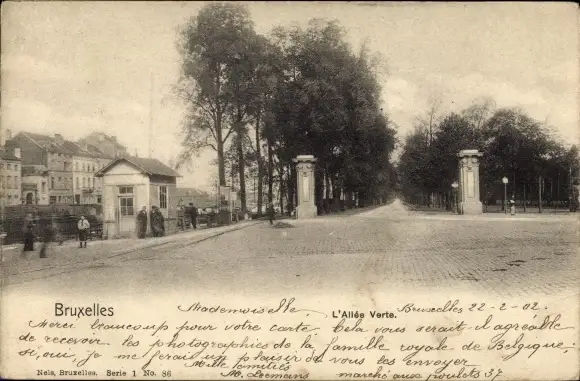 Bruxelles
L'Allée Verte.
Mademoiselle Bruxelles 22-2-02.
Merci beaucoup pour votre carte. Cela vous serait il agréable
de recevoir les photographies de la famille royale de Belgique;
si, oui, je me ferai un plaisir de vous les envoyer
Mille amitiés
M. marché aux poulets 37
Nels, Bruxelles. Serie 1 No. 86